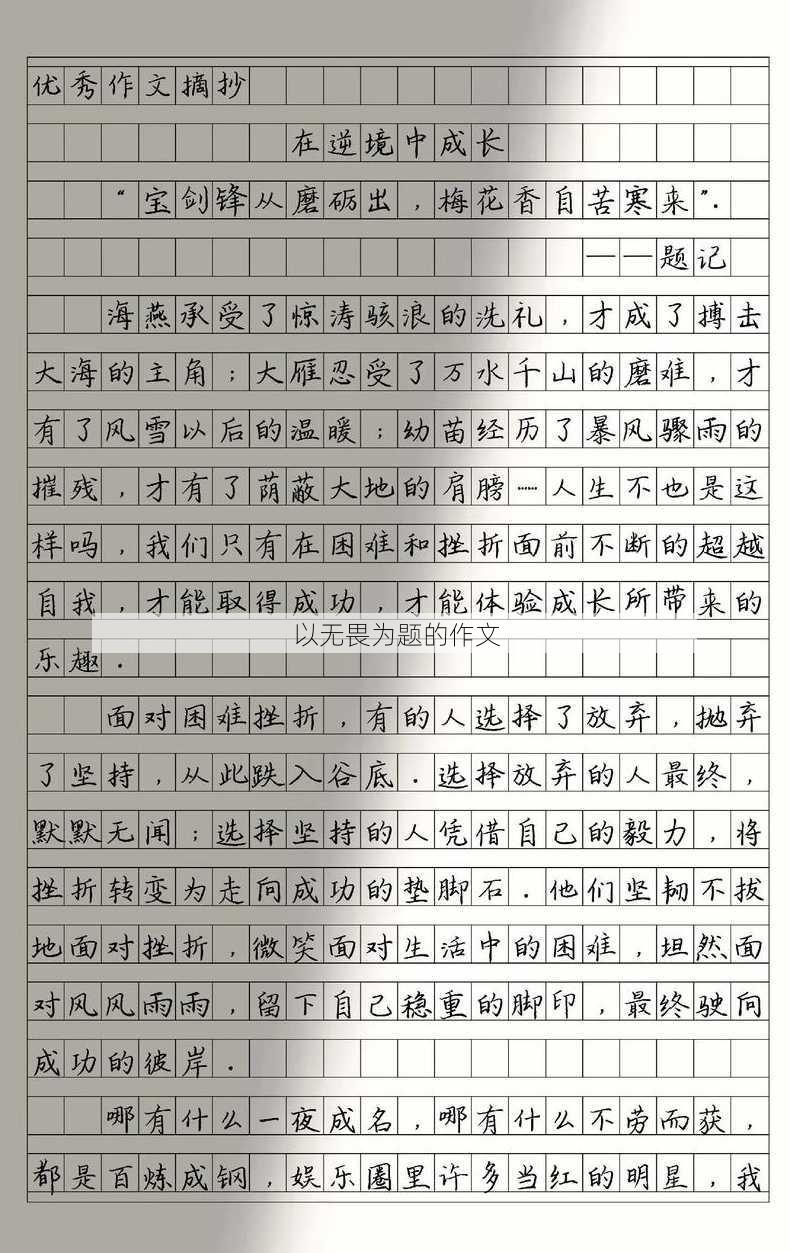 优秀作文摘抄
在逆境中成长
“宝剑锋从磨砺出，梅花香自苦寒来”.
——题记
海燕承受了惊涛骇浪的洗礼，才成了搏击
大海的主角；大雁忍受了万水千山的磨难，才
有了风雪以后的温暖；幼苗经历了暴风骤雨的
摧残，才有了荫蔽大地的肩膀……人生不也是这
样吗，我们只有在困难和挫折面前不断的超越
自我，才能取得成功，才能体验成长所带来的
以无畏为题的作文
乐趣.
面对困难挫折，有的人选择了放弃，抛弃
了坚持，从此跌入谷底.选择放弃的人最终，
默默无闻；选择坚持的人凭借自己的毅力，将
挫折转变为走向成功的垫脚石.他们坚韧不拔
地面对挫折，微笑面对生活中的困难，坦然面
对风风雨雨，留下自己稳重的脚印，最终驶向
成功的彼岸.
哪有什么一夜成名，哪有什么不劳而获，
都是百炼成钢，娱乐圈里许多当红的明星，我